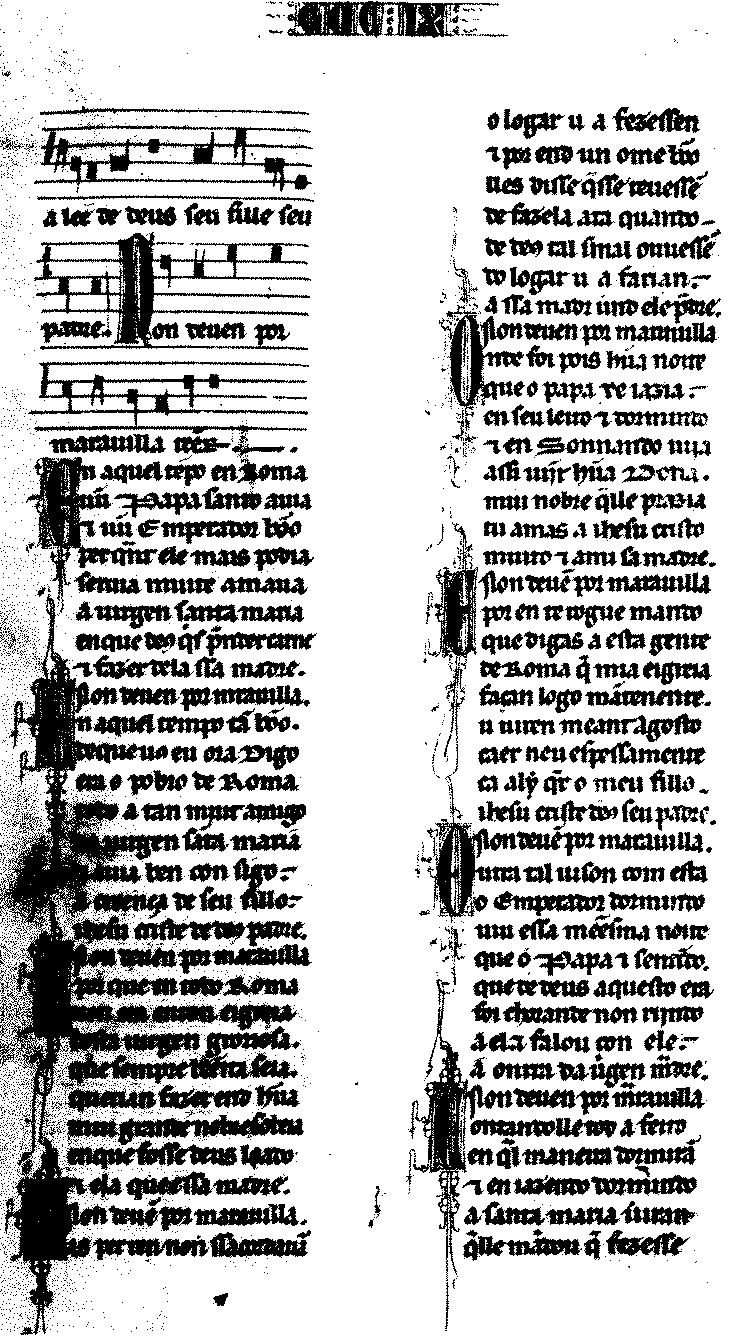 CCC IX
a lee de deus seu fille seu
padre. Non deuen por
marauilla tẽer
En aquel tẽpo en Roma
uũ Papa santo auia
⁊ uũ Emperador bõo
per q̃nt ele mais podia
seruia muite amaua
a uirgen santa maria
enque deꝯ q̃s p̃nder carne
⁊ fazer dela ssa madre.
Non deuen por marauilla.
En aquel tempo tã bõo.
deque uꝯ eu ora digo
era o poboo de Roma
todo a tan muit amigo
da uirgen sãta maria
⁊ auia ben con sigo
a creença de seu fillo
ihesu criste de deꝯ padre.
Non deuen por marauilla
por que en toda Roma
non era enton eigreia
desta uirgen griosa.
que sempre bẽeita seia.
querian fazer end hũa
mui grande nobre sobeia
enque fosse deus loado
⁊ ela que essa madre.
Non deuẽ por marauilla.
Mas per ren non ss acordauã
o logar u a fezessen
⁊ por end un ome bõo
lles disse q̃sse teuessẽ
de fazela ata quando
de deꝯ tal sinal ouuessẽ
do logar u a farian
a ssa madr und ele p̃dre.
Non deuen por marauilla
Onde foi pois hũa noite
que o papa xe iazia
en seu leito ⁊ dormindo
⁊ en Sonnando uiia
assi uĩjr hũa Dona.
mui nobre q̃lle dizia
tu amas a ihesu cristo
muito ⁊ a mi sa madre.
Non deuẽ por marauilla
Por en te rogue mando
que digas a esta gente
de Roma q̃ mia eigreia
façan logo mãtenente.
u uiren meant agosto
caer neu espessamente
ca aly q̃r o meu fillo
ihesu criste deꝯ seu padre.
Non deuẽ por marauilla.
Outra tal uison com esta
o Emperador dormindo
uiu essa meẽsma noite
que o Papa ⁊ sentido.
que de deus aquesto era
foi chorando non riindo
a ela falou con ele
a onrra da uirgen madre.
Non deuen por marauilla
Contandolle todo a feito
en q̃l maneira dormira
⁊ en iazendo dormindo
a santa maria
q̃lle mãdou q̃ fezesse